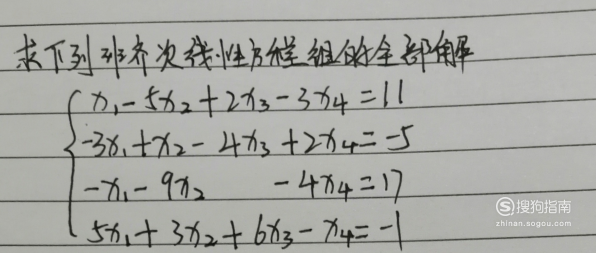 求下列非齐次线性方程组的全部解
x₁-5x₂+2x₃-3x₄=11
-3x₁+x₂-4x₃+2x₄=-5
-x₁-9x₂ -4x₄=17
5x₁+3x₂+6x₃-x₄=-1
搜狗指南
zhinan.sogou.com